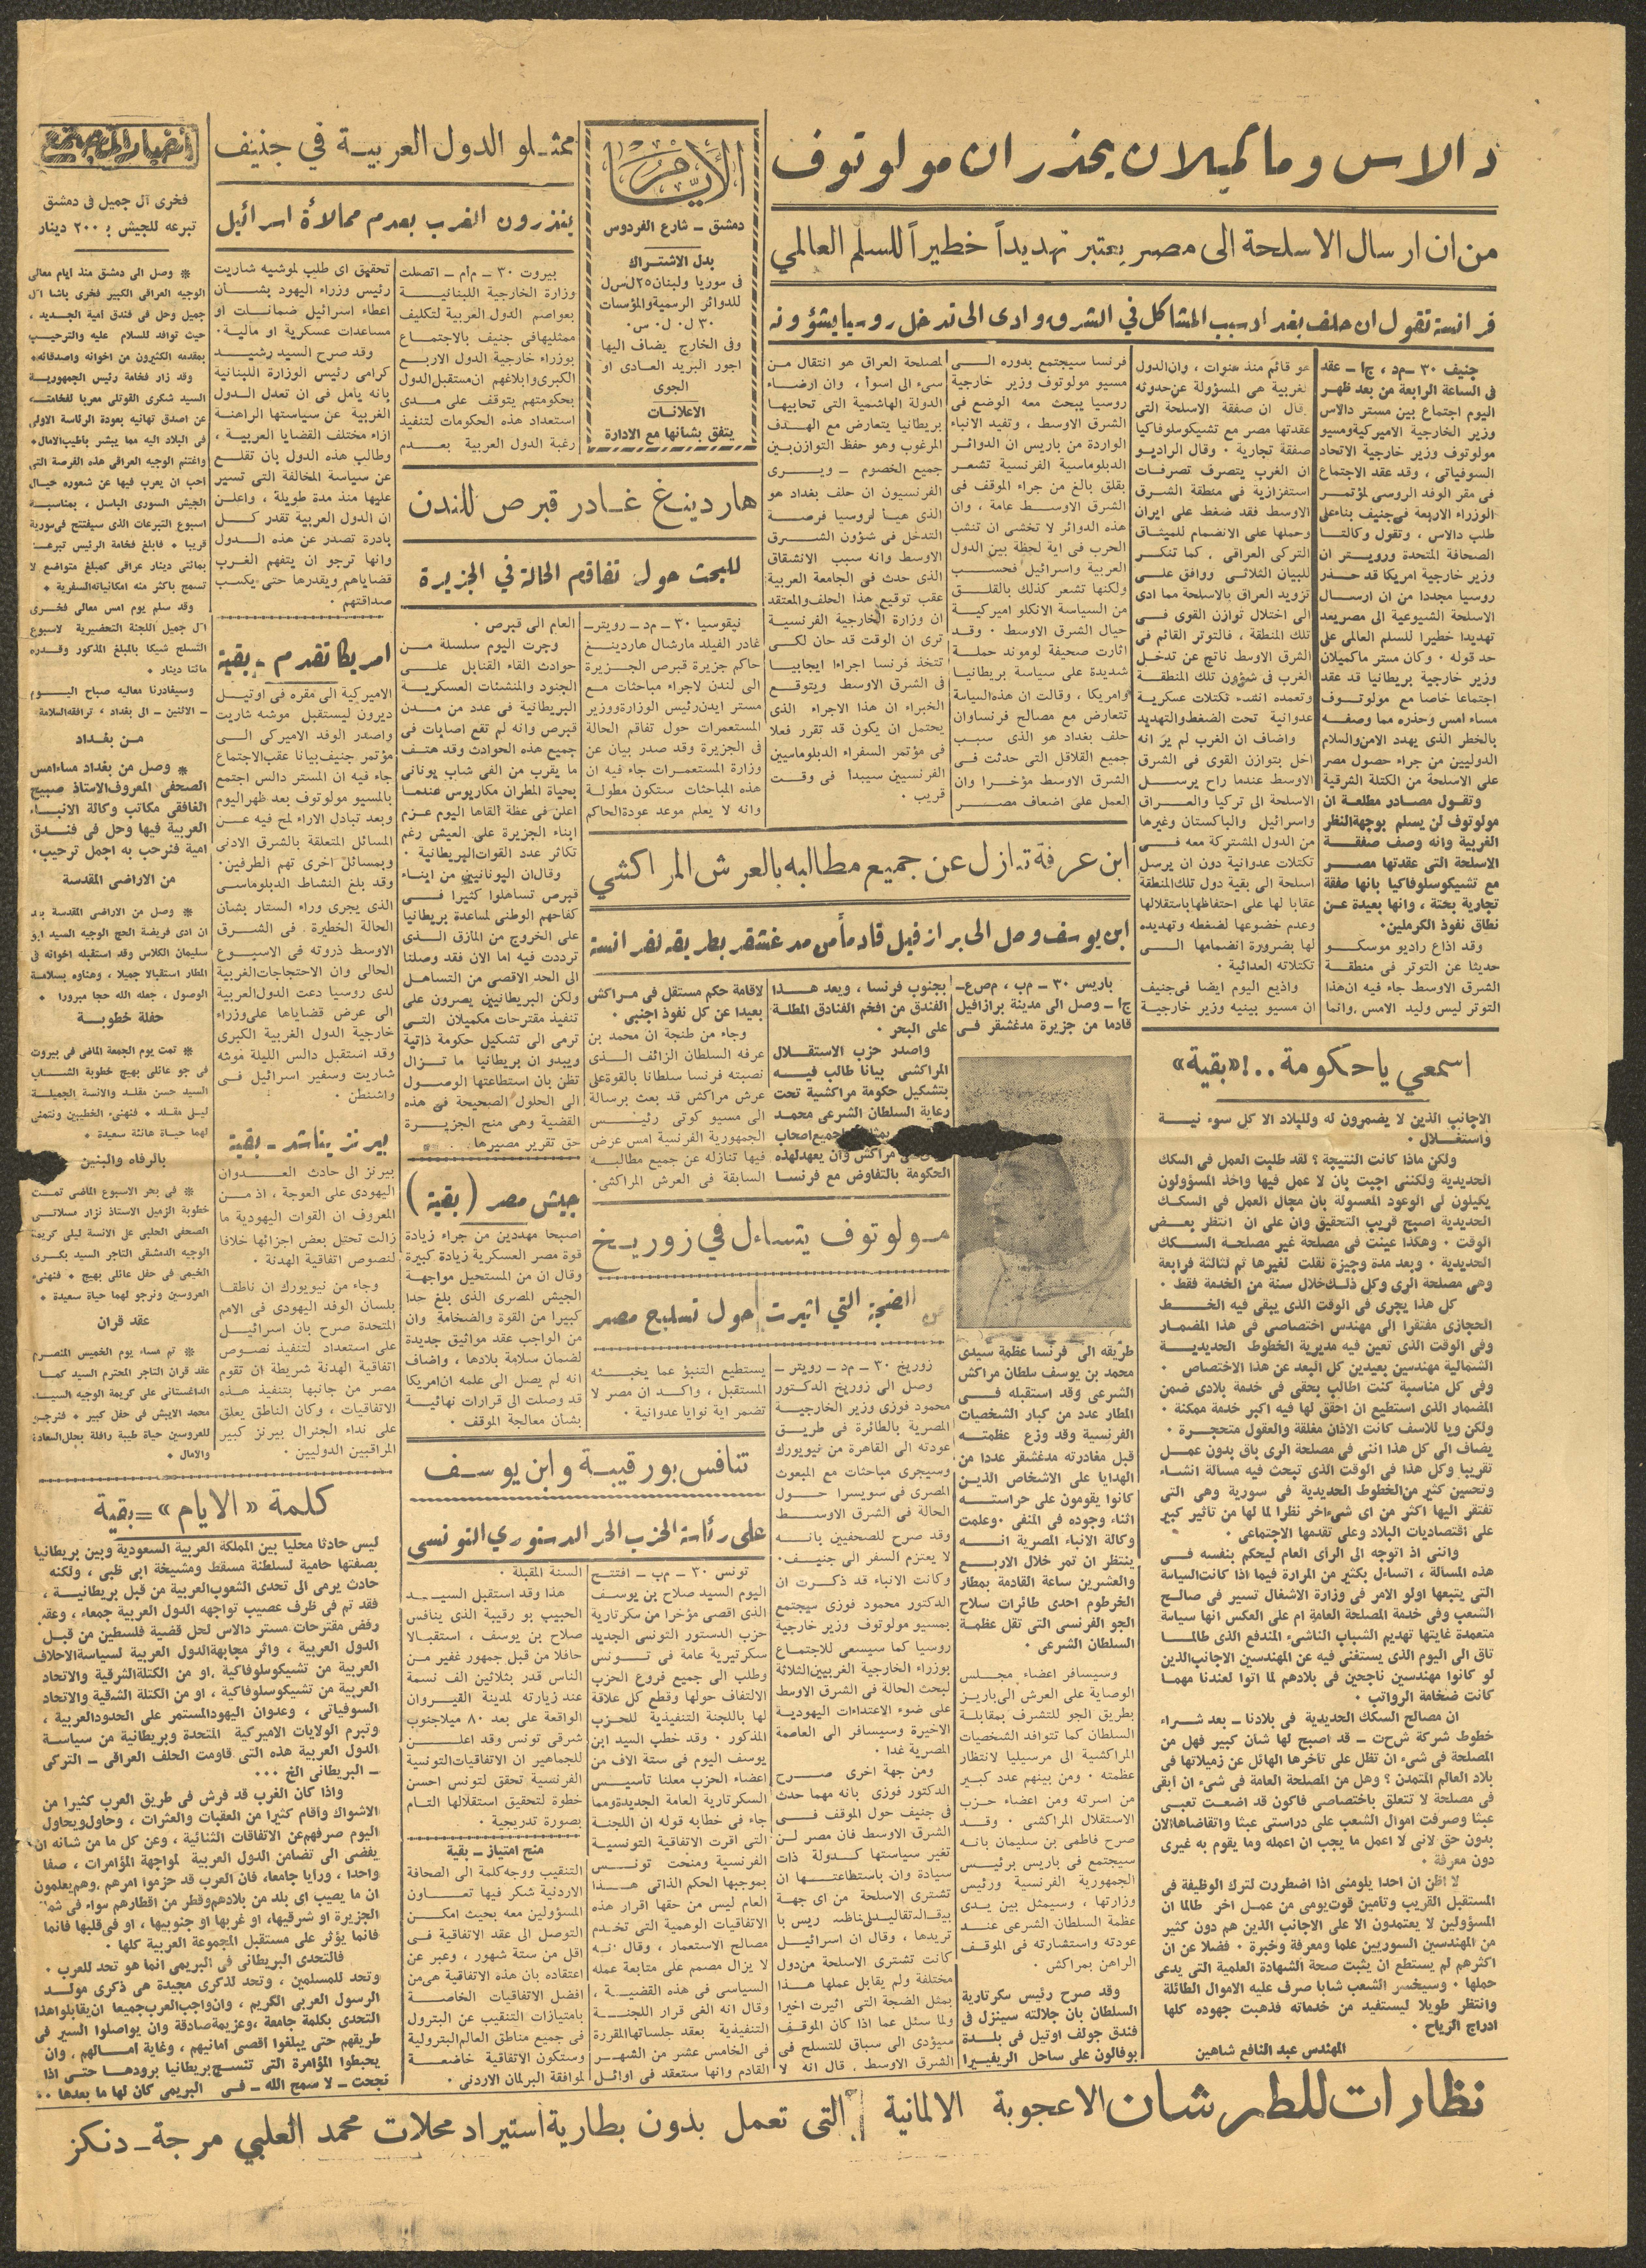 دالاس وماكميلان يحذران مولوتوف
من ان ارسال الاسلحة الى مصر يعتبر تهديداً خطيراً للسلم العالمي
فرانسة تقول ان حلف بغداد سبب المشاكل في الشرق وادى الى تدخل روسيا بشؤونه
جنيف ٣٠ ـ م د ، ج ا ـ عقد
فى الساعة الرابعة من بعد ظهر
اليوم اجتماع بين مستر دالاس
وزير الخارجية الاميركية ومسيو
مولوتوف وزير خارجية الاتحاد
السوفياتى ، وقد عقد الاجتماع
فى مقر الوفد الروسى لمؤتمر
الوزراء الاربعة فى جنيف بناء على
طلب دالاس ، وتقول وكالتا
الصحافة المتحدة ورويتر ان
وزير خارجية امريكا قد حذر
روسيا مجددا من ان ارسال
الاسلحة الشيوعية الى مصر يعد
تهديدا خطيرا للسلم العالمى على
حد قوله ٠ وكان مستر ماكميلان
وزير خارجية بريطانيا قد عقد
اجتماعا خاصا مع مولوتوف
مساء امس وحذره مما وصفه
بالخطر الذى يهدد الامن والسلام
الدوليين من جراء حصول مصر
على الاسلحة من الكتلة الشرقية
وتقول مصادر مطلعة ان
مولوتوف لن يسلم بوجهة النظر
الغربية وانه وصف صفقة
الاسلحة التى عقدتها مصر
مع تشيكوسلوفاكيا بانها صفقة
تجارية بحتة ، وانها بعيدة عن
نطاق نفوذ الكرملين٠
وقد اذاع راديو موسكو
حديثا عن التوتر فى منطقة
الشرق الاوسط جاء فيه ان هذا
التوتر ليس وليد الامس ، وانما
هو قائم منذ سنوات ، وان الدول
الغربية هى المسؤولة عن حدوثه
وقال ان صفقة الاسلحة التى
عقدتها مصر مع تشيكوسلوفاكيا
صفقة تجارية ٠ وقال الراديو
ان الغرب يتصرف تصرفات
استفزازية فى منطقة الشرق
الاوسط فقد ضغط على ايران
وحملها على الانضمام للميثاق
التركى العراقى ٠ كما تنكر
للبيان الثلاثى ووافق على
تزويد العراق بالاسلحة مما ادى
الى اختلال توازن القوى فى
تلك المنطقة ، فالتوتر القائم فى
الشرق الاوسط ناتج عن تدخل
الغرب فى شؤون تلك المنطقة
وتعمده انشاء تكتلات عسكرية
عدوانية تحت الضغط والتهديد
واضاف ان الغرب لم ير انه
اخل بتوازن القوى فى الشرق
الاوسط عندما راح يرسل
الاسلحة الى تركيا والعراق
واسرائيل والباكستان وغيرها
من الدول المشتركة معه فى
تكتلات عدوانية دون ان يرسل
اسلحة الى بقية دول تلك المنطقة
عقابا لها على احتفاظها باستقلالها
وعدم خضوعها لضغطه وتهديده
لها بضرورة انضمامها الى
تكتلاته العدائية ٠
واذيع اليوم ايضا فى جنيف
ان مسيو بينيه وزير خارجية
فرنسا سيجتمع بدوره الى
مسيو مولوتوف وزير خارجية
روسيا يبحث معه الوضع فى
الشرق الاوسط ، وتفيد الانباء
الواردة من باريس ان الدوائر
الدبلوماسية الفرنسية تشعر
بقلق بالغ من جراء الموقف فى
الشرق الاوسط عامة ، وان
هذه الدوائر لا تخشى ان تنشب
الحرب فى اية لحظة بين الدول
العربية واسرائيل فحسب
ولكنها تشعر كذلك بالقلق
من السياسة الانكلو اميركية
حيال الشرق الاوسط ٠ وقد
اثارت صحيفة لوموند حملة
شديدة على سياسة بريطانيا
وامريكا ، وقالت ان هذه السياسة
تتعارض مع مصالح فرنسا وان
حلف بغداد هو الذى سبب
جميع القلاقل التى حدثت فى
الشرق الاوسط مؤخرا وان
العمل على اضعاف مصر
لمصلحة العراق هو انتقال من
سىء الى اسوأ ، وان ارضاء
الدولة الهاشمية التى تحابيها
بريطانيا يتعارض مع الهدف
المرغوب وهو حفظ التوازن بين
جميع الخصوم ـ ويرى
الفرنسيون ان حلف بغداد هو
الذى هيأ لروسيا فرصة
التدخل فى شؤون الشرق
الاوسط وانه سبب الانشقاق
الذى حدث فى الجامعة العربية
عقب توقيع هذا الحلف والمعتقد
ان وزارة الخارجية الفرنسية
ترى ان الوقت قد حان لكى
تتخذ فرنسا اجراءا ايجابيا
فى الشرق الاوسط ويتوقع
الخبراء ان هذا الاجراء الذى
يحتمل ان يكون قد تقرر فعلا
فى مؤتمر السفراء الدبلوماسيين
الفرنسيين سيبدأ فى وقت
قريب ٠
الأيام
دمشق ـ شارع الفردوس
بدل الاشتراك
فى سوريا ولبنان ٢٥ ل س ل
للدوائر الرسمية والمؤسسات
٣٠ ل٠ ل٠ س٠
وفى الخارج يضاف اليها
اجور البريد العادى او
الجوى
الاعلانات
يتفق بشأنها مع الادارة
ممثلو الدول العربية في جنيف
ينذرون الغرب بعدم ممالأة اسرائيل
بيروت ٣٠ ـ م ام ـ اتصلت
وزارة الخارجية اللبنانية
بعواصم الدول العربية لتكليف
ممثليها فى جنيف بالاجتماع
بوزراء خارجية الدول الاربع
الكبرى وابلاغهم ان مستقبل الدول
بحكومتهم يتوقف على مدى
استعداد هذه الحكومات لتنفيذ
رغبة الدول العربية بعدم
تحقيق اى طلب لموشيه شاريت
رئيس وزراء اليهود بشأن
اعطاء اسرائيل ضمانات او
مساعدات عسكرية او مالية٠
وقد صرح السيد رشيد
كرامى رئيس الوزارة اللبنانية
بانه يامل فى ان تعدل الدول
الغربية عن سياستها الراهنة
ازاء مختلف القضايا العربية ،
وطالب هذه الدول بان تقلع
عن سياسة المخالفة التى تسير
عليها منذ مدة طويلة ، واعلن
ان الدول العربية تقدر كل
بادرة تصدر عن هذه الدول
وانها ترجو ان يتفهم الغرب
قضاياهم ويقدرها حتى يكسب
صداقتهم ٠
هاردينغ غادر قبرص للندن
للبحث حول تفاقم الحالة في الجزيرة
نيقوسيا ٣٠ ـ م د ـ رويتر ـ
غادر الفيلد مارشال هاردينغ
حاكم جزيرة قبرص الجزيرة
الى لندن لاجراء مباحثات مع
مستر ايدن رئيس الوزارة ووزير
المستعمرات حول تفاقم الحالة
فى الجزيرة وقد صدر بيان عن
وزارة المستعمرات جاء فيه ان
هذه المباحثات ستكون مطولة
وانه لا يعلم موعد عودة الحاكم
العام الى قبرص ٠
وجرت اليوم سلسلة من
حوادث القاء القنابل على
الجنود والمنشئات العسكرية
البريطانية فى عدد من مدن
قبرص وانه لم تقع اصابات فى
جميع هذه الحوادث وقد هتف
ما يقرب من الفى شاب يونانى
بحياة المطران مكاريوس عندما
اعلن فى عظة القاها اليوم عزم
ابناء الجزيرة على العيش رغم
تكاثر عدد القوات البريطانية ٠
وقال ان اليونانيين من ابناء
قبرص تساهلوا كثيرا فى
كفاحهم الوطنى لمساعدة بريطانيا
على الخروج من المازق الذى
ترددت فيه اما الان فقد وصلنا
الى الحد الاقصى من التساهل
ولكن البريطانيين يصرون على
تنفيذ مقترحات مكميلان التى
ترمى الى تشكيل حكومة ذاتية
ويبدو ان بريطانيا ما تزال
تظن بان استطاعتها الوصول
الى الحلول الصحيحة فى هذه
القضية وهى منح الجزيرة
حق تقرير مصيرها ٠
ابن عرفة تنازل عن جميع مطالبه بالعرش المراكشي
ابن يوسف وصل الى برازفيل قادماً من مدغشقر بطريقه لفرانسة
باريس ٣٠ ـ م ب ، م ص ع ـ
ج ا ـ وصل الى مدينة برازافيل
قادما من جزيرة مدغشقر فى
طريقه الى فرنسا عظمة سيدى
محمد بن يوسف سلطان مراكش
الشرعى وقد استقبله فى
المطار عدد من كبار الشخصيات
الفرنسية وقد وزع عظمته
قبل مغادرته مدغشقر عددا من
الهدايا على الاشخاص الذين
كانوا يقومون على حراسته
اثناء وجوده فى المنفى ٠ وعلمت
وكالة الانباء المصرية انه
ينتظر ان تمر خلال الاربع
والعشرين ساعة القادمة بمطار
الخرطوم احدى طائرات سلاح
الجو الفرنسى التى تقل عظمة
السلطان الشرعى ٠
وسيسافر اعضاء مجلس
الوصاية على العرش الى باريز
بطريق الجو للتشرف بمقابلة
السلطان كما تتوافد الشخصيات
المراكشية الى مرسيليا لانتظار
عظمته ٠ ومن بينهم عدد كبير
من اسرته ومن اعضاء حزب
الاستقلال المراكشى ٠ وقد
صرح فاطمى بن سليمان بانه
سيجتمع فى باريس برئيس
الجمهورية الفرنسية ورئيس
وزارتها ، وسيمثل بين يدى
عظمة السلطان الشرعى عند
عودته واستشارته فى الموقف
الراهن بمراكش ٠
وقد صرح رئيس سكرتارية
السلطان بان جلالته سينزل فى
فندق جولف اوتيل فى بلدة
بوفالون على ساحل الريفييرا
بجنوب فرنسا ، ويعد هذا
الفندق من افخم الفنادق المطلة
على البحر ٠
واصدر حزب الاستقلال
المراكشى بيانا طالب فيه
بتشكيل حكومة مراكشية تحت
رعاية السلطان الشرعى محمد
جميع اصحاب
مراكش وان يعهد لهذه
الحكومة بالتفاوض مع فرنسا
لاقامة حكم مستقل فى مراكش
بعيدا عن كل نفوذ اجنبى ٠
وجاء من طنجة ان محمد بن
عرفه السلطان الزائف الذى
نصبته فرنسا سلطانا بالقوة على
عرش مراكش قد بعث برسالة
الى مسيو كوتى رئيس
الجمهورية الفرنسية امس عرض
فيها تنازله عن جميع مطالبه
السابقة فى العرش المراكشى٠
مولوتوف يتساءل في زوريخ
عن الضجة التي اثيرت حول تسليح مصر
زوريخ ٣٠ ـ م د ـ رويتر ـ
وصل الى زوريخ الدكتور
محمود فوزى وزير الخارجية
المصرية بالطائرة فى طريق
عودته الى القاهرة من نيويورك
وسيجرى مباحثات مع المبعوث
المصرى فى سويسرا حول
الحالة فى الشرق الاوسط
وقد صرح للصحفيين بانه
لا يعتزم السفر الى جنيف٠
وكانت الانباء قد ذكرت ان
الدكتور محمود فوزى سيجتمع
بمسيو مولوتوف وزير خارجية
روسيا كما سيسعى للاجتماع
بوزراء الخارجية الغربيين الثلاثة
لبحث الحالة فى الشرق الاوسط
على ضوء الاعتداءات اليهودية
الاخيرة وسيسافر الى العاصمة
المصرية غدا ٠
ومن جهة اخرى صرح
الدكتور فوزى بانه مهما حدث
فى جنيف حول الموقف فى
الشرق الاوسط فان مصر لن
تغير سياستها كدولة ذات
سيادة وان باستطاعتها ان
تشترى الاسلحة من اى جهة
تريدها ، وقال ان اسرائيل
كانت تشترى الاسلحة من دول
مختلفة ولم يقابل عملها هذا
بمثل الضجة التى اثيرت اخيرا
ولما سئل عما اذا كان الموقف
سيؤدى الى سباق للتسلح فى
الشرق الاوسط ٠ قال انه لا
يستطيع التنبؤ عما يخبئه
المستقبل ، واكد ان مصر لا
تضمر اية نوايا عدوانية ٠
جيش مصر (بقية)
اصبحا مهددين من جراء زيادة
قوة مصر العسكرية زيادة كبيرة
وقال ان من المستحيل مواجهة
الجيش المصرى الذى بلغ حدا
كبيرا من القوة والضخامة وان
من الواجب عقد مواثيق جديدة
لضمان سلامة بلادها ، واضاف
انه لم يصل الى علمه ان امريكا
قد وصلت الى قرارات نهائية
بشان معالجة الموقف ٠
تنافس بورقيبة وابن يوسف
على رئاسة الحزب الحر الدستوري التونسي
تونس ٣٠ ـ م ب ـ افتتح
اليوم السيد صلاح بن يوسف
الذى اقصى مؤخرا من سكرتارية
حزب الدستور التونسى الجديد
سكرتيرية عامة فى تونس
وطلب الى جميع فروع الحزب
الالتفاف حولها وقطع كل علاقة
لها باللجنة التنفيذية للحزب
المذكور ٠ وقد خطب السيد ابن
يوسف اليوم فى ستة الاف من
اعضاء الحزب معلنا تاسيس
السكرتارية العامة الجديدة ومما
جاء فى خطابه قوله ان اللجنة
التى اقرت الاتفاقية التونسية
الفرنسية ومنحت تونس
بموجبها الحكم الذاتى هذا
العام ليس من حقها اقرار هذه
الاتفاقيات الوهمية التى تخدم
مصالح الاستعمار ، وقال انه
لا يزال مصمم على متابعة عمله
السياسى فى هذه القضية ،
وقال انه الغى قرار اللجنة
التنفيذية بعقد جلساتها المقررة
فى الخامس عشر من الشهر
القادم وانها ستعقد فى اوائل
السنة المقبلة ٠
هذا وقد استقبل السيد
الحبيب بو رقيبة الذى ينافس
صلاح بن يوسف ، استقبالا
حافلا من قبل جمهور غفير من
الناس قدر بثلاثين الف نسمة
عند زيارته لمدينة القيروان
الواقعة على بعد ٨٠ ميلا جنوب
شرقى تونس وقد اعلن
للجماهير ان الاتفاقيات التونسية
الفرنسية تحقق لتونس احسن
خطوة لتحقيق استقلالها التام
بصورة تدريجية ٠
منح امتياز ـ بقية
التنقيب ووجه كلمة الى الصحافة
الاردنية شكر فيها تعاون
المسؤولين معه بحيث امكن
التوصل الى عقد الاتفاقية فى
اقل من ستة شهور ، وعبر عن
اعتقاده بان هذه الاتفاقية هى من
افضل الاتفاقيات الخاصة
بامتيازات التنقيب عن البترول
فى جميع مناطق العالم البترولية
وستكون الاتفاقية خاضعة
لموافقة البرلمان الاردنى ٠
امريكا تقدم ـ بقية
الاميركية الى مقره فى اوتيل
ديرون ليستقبل موشه شاريت
واصدر الوفد الاميركى الى
مؤتمر جنيف بيانا عقب الاجتماع
جاء فيه ان المستر دالس اجتمع
بالمسيو مولوتوف بعد ظهر اليوم
وبعد تبادل الاراء لمح فيه عن
المسائل المتعلقة بالشرق الادنى
وبمسائل اخرى تهم الطرفين٠
وقد بلغ النشاط الدبلوماسى
الذى يجرى وراء الستار بشأن
الحالة الخطيرة فى الشرق
الاوسط ذروته فى الاسبوع
الحالى وان الاحتجاجات الغربية
لدى روسيا دعت الدول العربية
الى عرض قضاياها على وزراء
خارجية الدول الغربية الكبرى
وقد استقبل دالس الليلة موشه
شاريت وسفير اسرائيل فى
واشنطن ٠
بيرنز يناشد ـ بقية
بيرنز الى حادث العدوان
اليهودى على العوجة ، اذ من
المعروف ان القوات اليهودية ما
زالت تحتل بعض اجزائها خلافا
لنصوص اتفاقية الهدنة ٠
وجاء من نيويورك ان ناطقا
بلسان الوفد اليهودى فى الامم
المتحدة صرح بان اسرائيل
على استعداد لتنفيذ نصوص
اتفاقية الهدنة شريطة ان تقوم
مصر من جانبها بتنفيذ هذه
الاتفاقيات ، وكان الناطق يعلق
على نداء الجنرال بيرنز كبير
المراقبين الدوليين ٠
أخبار المجتمع
فخرى آل جميل فى دمشق
تبرعه للجيش بـ ٢٠٠ دينار
※ وصل الى دمشق منذ ايام معالى
الوجيه العراقى الكبير فخرى باشا ال
جميل وحل فى فندق امية الجديد ،
حيث توافد للسلام عليه والترحيب
بمقدمه الكثيرون من اخوانه واصدقائه٠
وقد زار فخامة رئيس الجمهورية
السيد شكرى القوتلى معربا لفخامته
عن اصدق تهانيه بعودة الرئاسة الاولى
فى البلاد اليه مما يبشر باطيب الامال٠
واغتنم الوجيه العراقى هذه الفرصة التى
احب ان يعرب فيها عن شعوره حيال
الجيش السورى الباسل ، بمناسبة
اسبوع التبرعات الذى سيفتتح فى سورية
قريبا ٠ فابلغ فخامة الرئيس تبرعه
بمائتى دينار عراقى كمبلغ متواضع لا
تسمح باكثر منه امكانياته السفرية ٠
وقد سلم يوم امس معالى فخرى
ال جميل اللجنة التحضيرية لاسبوع
التسلح شيكا بالمبلغ المذكور وقدره
مائتا دينار ٠
وسيغادرنا معاليه صباح اليوم
ـ الاثنين ـ الى بغداد ، ترافقه السلامة
من بغداد
※ وصل من بغداد مساء امس
الصحفى المعروف الاستاذ صبيح
الغافقى مكاتب وكالة الانباء
العربية فيها وحل فى فندق
امية فنرحب به اجمل ترحيب٠
من الاراضى المقدسة
※ وصل من الاراضى المقدسة بعد
ان ادى فريضة الحج الوجيه السيد ابو
سليمان الكلاس وقد استقبله اخوانه فى
المطار استقبالا جميلا ، وهناوه بسلامة
الوصول ، جعله الله حجا مبرورا ٠
حفلة خطوبة
※ تمت يوم الجمعة الماضى فى بيروت
فى جو عائلى بهيج خطوبة الشاب
السيد حسن مقلد والانسة الجميلة
ليلى مقلد ٠ فنهنىء الخطيبين ونتمنى
لهما حياة هانئة سعيدة ٠
بالرفاه والبنين
※ فى بحر الاسبوع الماضى تمت
خطوبة الزميل الاستاذ نزار مسلاتى
الصحفى الحلبى على الانسة ليلى كريمة
الوجيه الدمشقى التاجر السيد بكرى
الخيمى فى حفل عائلى بهيج ٠ فنهنىء
العروسين ونرجو لهما حياة سعيدة ٠
عقد قران
※ تم مساء يوم الخميس المنصرم
عقد قران التاجر المحترم السيد كمال
الداغستانى على كريمة الوجيه السيد
محمد الايبش فى حفل كبير ٠ فنرجو
للعروسين حياة طيبة رافلة بحلل السعادة
والامال ٠
كلمة «الايام» = بقية
ليس حادثا محليا بين المملكة العربية السعودية وبين بريطانيا
بصفتها حامية لسلطنة مسقط ومشيخة ابى ظبى ، ولكنه
حادث يرمى الى تحدى الشعوب العربية من قبل بريطانية ،
فقد تم فى ظرف عصيب تواجهه الدول العربية جمعاء ، وعقب
رفض مقترحات مستر دالاس لحل قضية فلسطين من قبل
الدول العربية ، واثر مجابهة الدول العربية لسياسة الاحلاف
العربية من تشيكوسلوفاكية ، او من الكتلة الشرقية والاتحاد
العربية من تشيكوسلوفاكية ، او من الكتلة الشرقية والاتحاد
السوفياتى ، وعدوان اليهود المستمر على الحدود العربية ،
وتبرم الولايات الاميركية المتحدة وبريطانية من سياسة
الدول العربية هذه التى قاومت الحلف العراقى ـ التركى
ـ البريطانى الخ ٠٠٠
واذا كان الغرب قد فرش فى طريق العرب كثيرا من
الاشواك واقام كثيرا من العقبات والعثرات ، وحاول ويحاول
اليوم صرفهم عن الاتفاقات الثنائية ، وعن كل ما من شانه ان
يفضى الى تضامن الدول العربية لمواجهة المؤامرات ، صفا
واحدا ، ورايا جامعا، فان العرب قد حزموا امرهم ، وهم يعلمون
ان ما يصيب اى بلد من بلادهم وقطر من اقطارهم سواء فى شمال
الجزيرة او شرقيها، او غربها او جنوبيها ، او فى قلبها فانما
فانما يؤثر على مستقبل المجموعة العربية كلها ٠
فالتحدى البريطانى فى البريمى انما هو تحد للعرب ٠
وتحد للمسلمين ، وتحد لذكرى مجيدة هى ذكرى مولد
الرسول العربى الكريم ، وان واجب العرب جميعا ان يقابلوا هذا
التحدى بكلمة جامعة ، وعزيمة صادقة وان يواصلوا السير فى
طريقهم حتى يبلغوا اقصى امانيهم ، وغاية امالهم ، وان
يحبطوا المؤامرة التى تنسج بريطانيا برودها حتى اذا
نجحت ـ لا سمح الله ـ فى البريمى كان لها ما بعدها ٠٠
اسمعي يا حكومة ..! «بقية»
الاجانب الذين لا يضمرون له وللبلاد الا كل سوء نية
واستغلال ٠
ولكن ماذا كانت النتيجة ؟ لقد طلبت العمل فى السكك
الحديدية ولكننى اجبت بان لا عمل فيها واخذ المسؤولون
يكيلون لى الوعود المعسولة بان مجال العمل فى السكك
الحديدية اصبح قريب التحقيق وان على ان انتظر بعض
الوقت ٠ وهكذا عينت فى مصلحة غير مصلحة السكك
الحديدية ٠ وبعد مدة وجيزة نقلت لغيرها ثم لثالثة فرابعة
وهى مصلحة الرى وكل ذلك خلال سنة من الخدمة فقط ٠
كل هذا يجرى فى الوقت الذى يبقى فيه الخط
الحجازى مفتقرا الى مهندس اختصاصى فى هذا المضمار
وفى الوقت الذى تعين فيه مديرية الخطوط الحديدية
الشمالية مهندسين بعيدين كل البعد عن هذا الاختصاص ٠
وفى كل مناسبة كنت اطالب بحقى فى خدمة بلادى ضمن
المضمار الذى استطيع ان احقق لها فيه اكبر خدمة ممكنة ٠
ولكن ويا للاسف كانت الاذان مغلقة والعقول متحجرة ٠
يضاف الى كل هذا اننى فى مصلحة الرى باق بدون عمل
تقريبا وكل هذا فى الوقت الذى تبحث فيه مسالة انشاء
وتحسين كثير من الخطوط الحديدية فى سورية وهى التى
تفتقر اليها اكثر من اى شىء اخر نظرا لما لها من تاثير كبير
على اقتصاديات البلاد وعلى تقدمها الاجتماعى ٠
واننى اذ اتوجه الى الراى العام ليحكم بنفسه فى
هذه المسالة ، اتساءل بكثير من المرارة فيما اذا كانت السياسة
التى يتبعها اولو الامر فى وزارة الاشغال تسير فى صالح
الشعب وفى خدمة المصلحة العامة ام على العكس انها سياسة
متعمدة غايتها تهديم الشباب الناشىء المندفع الذى طالما
تاق الى اليوم الذى يستغنى فيه عن المهندسين الاجانب الذين
لو كانوا مهندسين ناجحين فى بلادهم لما اتوا لعندنا مهما
كانت ضخامة الرواتب ٠
ان مصالح السكك الحديدية فى بلادنا ـ بعد شراء
خطوط شركة ش ح ت ـ قد اصبح لها شان كبير فهل من
المصلحة فى شىء ان تظل على تاخرها الهائل عن زميلاتها فى
بلاد العالم المتمدن ؟ وهل من المصلحة العامة فى شىء ان ابقى
فى مصلحة لا تتعلق باختصاصى فاكون قد اضعت تعبى
عبثا وصرفت اموال الشعب على دراستى عبثا واتقاضاها الان
بدون حق لانى لا اعمل ما يجب ان اعمله وما يقوم به غيرى
دون معرفة ٠
لا اظن ان احدا يلومنى اذا اضطررت لترك الوظيفة فى
المستقبل القريب وتامين قوت يومى من عمل اخر طالما ان
المسؤولين لا يعتمدون الا على الاجانب الذين هم دون كثير
من المهندسين السوريين علما ومعرفة وخبرة ٠ فضلا عن ان
اكثرهم لم يستطع ان يثبت صحة الشهادة العلمية التى يدعى
حملها ٠ وسيخسر الشعب شابا صرف عليه الاموال الطائلة
وانتظر طويلا ليستفيد من خدماته فذهبت جهوده كلها
ادراج الرياح ٠
المهندس عبد النافع شاهين
نظارات للطرشان الاعجوبة الالمانية التى تعمل بدون بطارية استيراد محلات محمد العلبي مرجة ـ دنكز